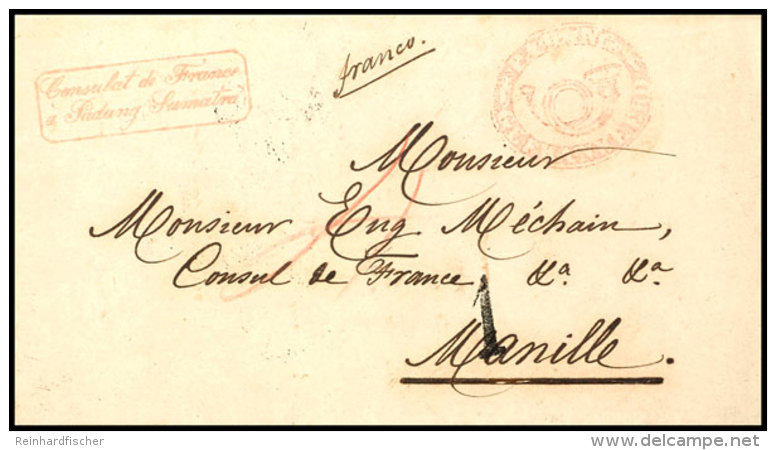 Consulat de France
a Padang Sumatra
franco.
Monsieur
Monsieur Eug Méchain,
Consul de France &a. &a.
1
Manille.
Reinhardfischer
delcampe.net